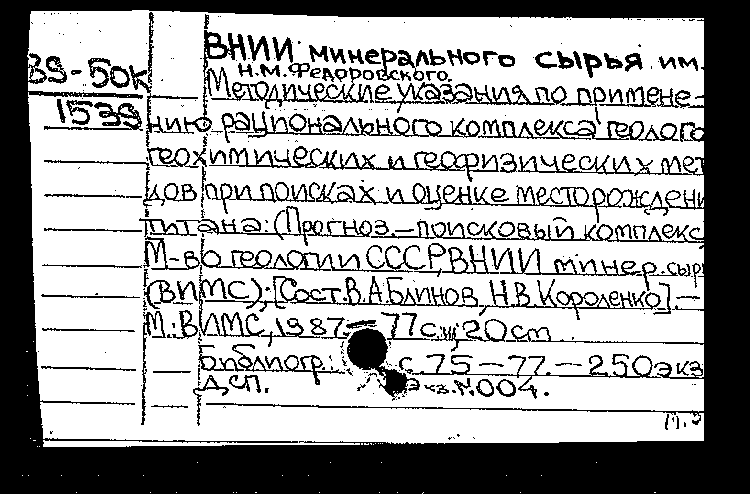 ВНИИ минерального сырья им.
Н.М.Федоровского.
89-50к
1539
Методические указания по примене-
нию рационального комплекса геолого
геохимических и геофизических мет
дов при поисках и оценке месторождени
титана: (Прогноз.-поисковый комплекс
М-во геологии СССР, ВНИИ минер. сыр
(ВИМС); [Сост. В.А.Блинов, Н.В.Короленко].-
М.: ВИМС, 1987.- 77 с.; 20 см.
Библиогр.: с.75-77.-250экз
Д.сп. Экз.N004.